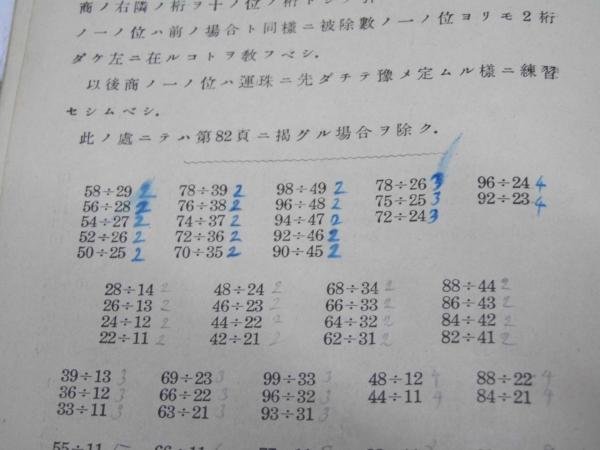 商ノ右隣ノ桁ヲ十ノ位ノ桁トシ
ノ一ノ位ハ前ノ場合ト同樣ニ被除數ノ一ノ位ヨリモ2桁
ダケ左ニ在ルコトヲ敎フベシ.
以後商ノ一ノ位ハ運珠ニ先ダチテ豫メ定ムル樣ニ練習
セシムベシ.
此ノ處ニテハ第82頁ニ揭グル場合ヲ除ク.
58÷29 2 78÷39 2 98÷49 2 78÷26 3 96÷24 4
56÷28 2 76÷38 2 96÷48 2 75÷25 3 92÷23 4
54÷27 2 74÷37 2 94÷47 2 72÷24 3
52÷26 2 72÷36 2 92÷46 2
50÷25 2 70÷35 2 90÷45 2
28÷14 2 48÷24 2 68÷34 2 88÷44 2
26÷13 2 46÷23 2 66÷33 2 86÷43 2
24÷12 2 44÷22 2 64÷32 2 84÷42 2
22÷11 2 42÷21 2 62÷31 2 82÷41 2
39÷13 3 69÷23 3 99÷33 3 48÷12 4 88÷22 4
36÷12 3 66÷22 3 96÷32 3 44÷11 4 84÷21 4
33÷11 3 63÷21 3 93÷31 3
55÷11